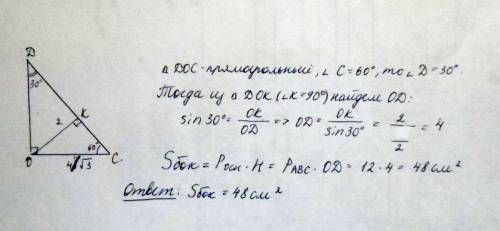 D
30°
2
K
60°
O
4√3
C
△ DOC - прямоугольный, ∠ C = 60°, то ∠ D = 30°.
Тогда из △ DOK (∠K = 90°) найдем OD:
sin 30° = OK/OD => OD = OK/sin 30° = 2/(1/2) = 4
Sбок = Pосн · H = P_ABC · OD = 12 · 4 = 48 см²
Ответ: Sбок = 48 см²